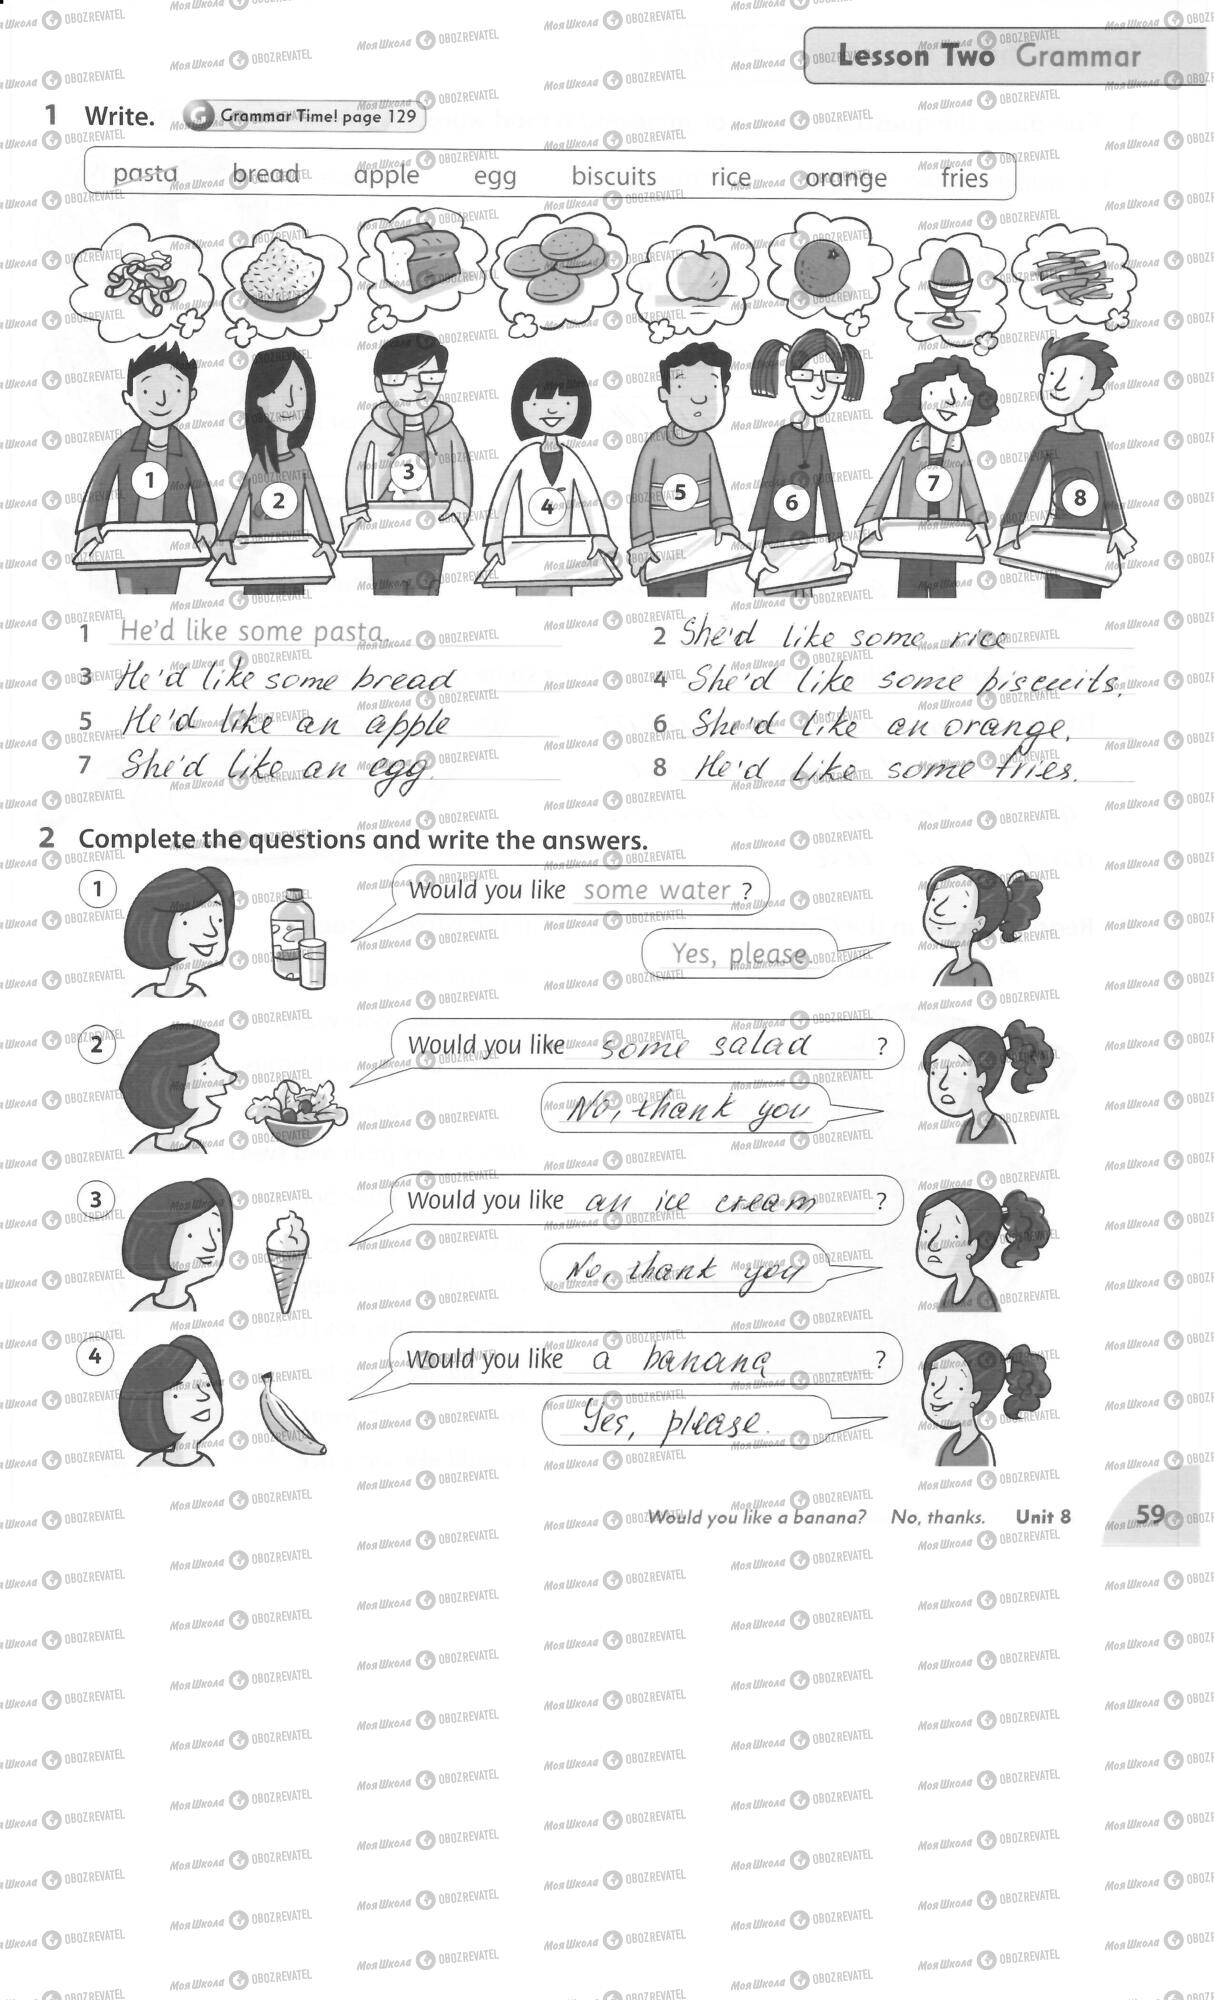 Lesson Two Grammar
1 Write. G Grammar Time! page 129
pasta bread apple egg biscuits rice orange fries
1 2 3 4 5 6 7 8
1 He'd like some pasta.
2 She'd like some rice
3 He'd like some bread
4 She'd like some biscuits.
5 He'd like an apple
6 She'd like an orange.
7 She'd like an egg.
8 He'd like some fries.
2 Complete the questions and write the answers.
1 Would you like some water ?
Yes, please.
2 Would you like some salad ?
No, thank you
3 Would you like an ice cream ?
No, thank you
4 Would you like a banana ?
Yes, please.
Would you like a banana? No, thanks. Unit 8 59
МояШкола OBOZREVATEL